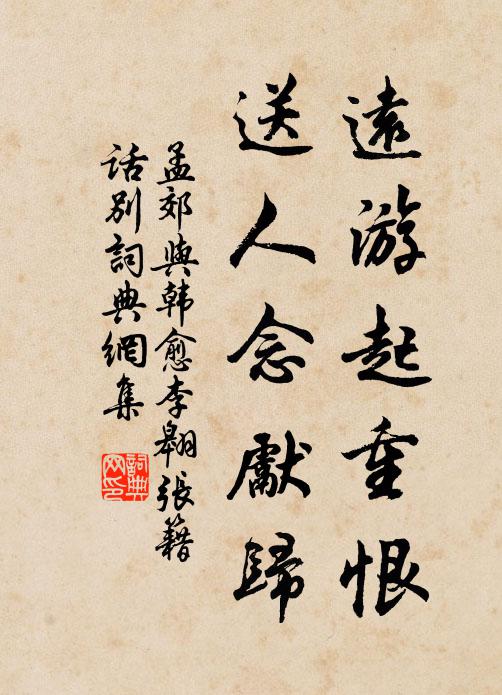 遠游起重恨
送人念獻歸
孟郊與韩愈李翱張籍
话别詞典網集
詞典
网印